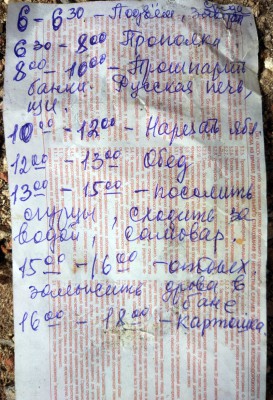 6 – 6³⁰ – Подъём, завтрак
6³⁰ – 8⁰⁰ Прополка
8⁰⁰ – 10⁰⁰ – Прошпарить
банки. Русская печь,
щи.
10⁰⁰ – 12⁰⁰ – Нарезать ябл.
12⁰⁰ – 13⁰⁰ Обед
13⁰⁰ – 15⁰⁰ – посолить
огурцы, сходить за
водой, самовар.
15⁰⁰ – 16⁰⁰ – отдых,
замысить дрова в
бане
16⁰⁰ – 18⁰⁰ – картошка